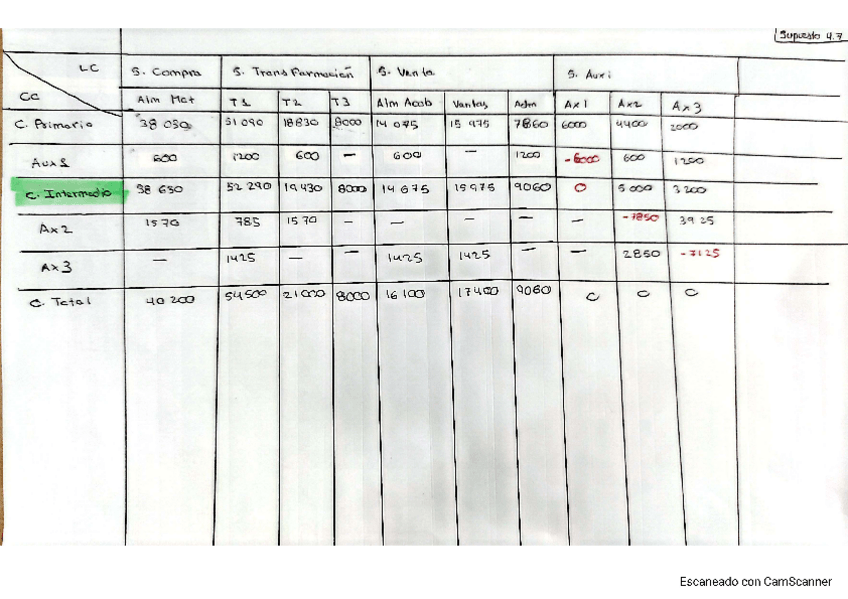 Supuesto 4.7
LC S. Compra S. Transformación S. Venta S. Auxi
CC Alm Mat T1 T2 T3 Alm Acab Ventas Adm Ax1 Ax2 Ax3
C. Primario 38 030 51 090 18830 8000 14 075 15 975 7860 6000 4400 2000
Aux1 600 1200 600 — 600 — 1200 -6000 600 1200
C. Intermedio 38 630 52 290 19 430 8000 14 675 15975 9060 0 5000 3200
Ax2 1570 785 1570 — — — — — -7850 3925
Ax3 — 1425 — — 1425 1425 — — 2850 -7125
C. Total 40 200 54500 21000 8000 16 100 17400 9060 0 0 0
Escaneado con CamScanner